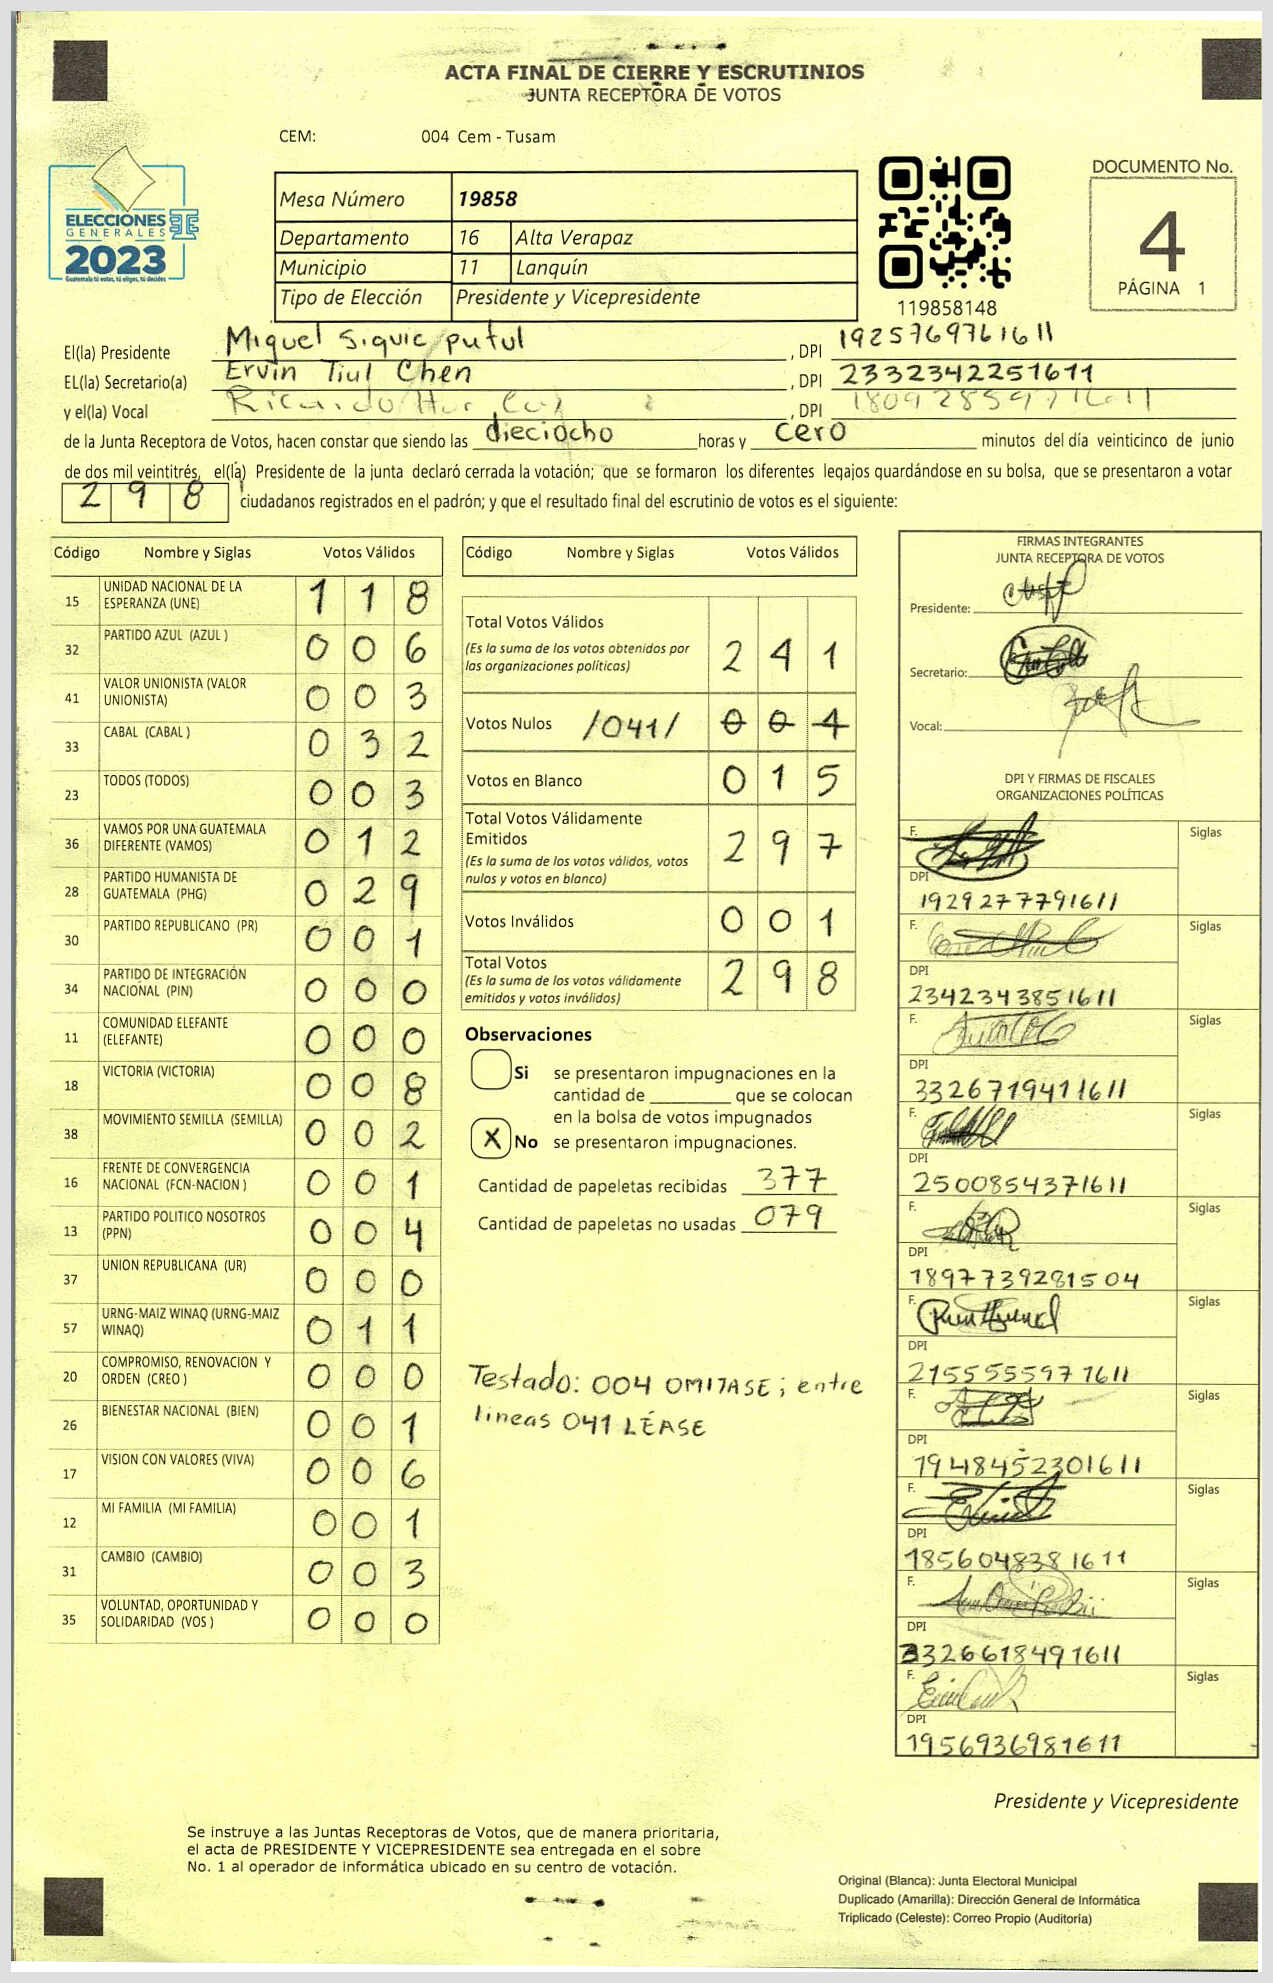 ACTA FINAL DE CIERRE Y ESCRUTINIOS
JUNTA RECEPTORA DE VOTOS
CEM: 004 Cem - Tusam
ELECCIONES
GENERALES
2023
Guatemala tú votas, tú eliges, tú decides
Mesa Número 19858
Departamento 16 Alta Verapaz
Municipio 11 Lanquín
Tipo de Elección Presidente y Vicepresidente
119858148
DOCUMENTO No.
4
PÁGINA 1
El(la) Presidente Miguel Siquic putul , DPI 1925769761611
EL(la) Secretario(a) Ervin Tiul Chen , DPI 2332342251611
y el(la) Vocal Ricardo , DPI
de la Junta Receptora de Votos, hacen constar que siendo las dieciocho horas y cero minutos del día veinticinco de junio
de dos mil veintitrés, el(la) Presidente de la junta declaró cerrada la votación; que se formaron los diferentes legajos guardándose en su bolsa, que se presentaron a votar
298 ciudadanos registrados en el padrón; y que el resultado final del escrutinio de votos es el siguiente:
Código Nombre y Siglas Votos Válidos
15 UNIDAD NACIONAL DE LA ESPERANZA (UNE) 118
32 PARTIDO AZUL (AZUL ) 006
41 VALOR UNIONISTA (VALOR UNIONISTA) 003
33 CABAL (CABAL ) 032
23 TODOS (TODOS) 003
36 VAMOS POR UNA GUATEMALA DIFERENTE (VAMOS) 012
28 PARTIDO HUMANISTA DE GUATEMALA (PHG) 029
30 PARTIDO REPUBLICANO (PR) 001
34 PARTIDO DE INTEGRACIÓN NACIONAL (PIN) 000
11 COMUNIDAD ELEFANTE (ELEFANTE) 000
18 VICTORIA (VICTORIA) 008
38 MOVIMIENTO SEMILLA (SEMILLA) 002
16 FRENTE DE CONVERGENCIA NACIONAL (FCN-NACION ) 001
13 PARTIDO POLITICO NOSOTROS (PPN) 004
37 UNION REPUBLICANA (UR) 000
57 URNG-MAIZ WINAQ (URNG-MAIZ WINAQ) 011
20 COMPROMISO, RENOVACION Y ORDEN (CREO ) 000
26 BIENESTAR NACIONAL (BIEN) 001
17 VISION CON VALORES (VIVA) 006
12 MI FAMILIA (MI FAMILIA) 001
31 CAMBIO (CAMBIO) 003
35 VOLUNTAD, OPORTUNIDAD Y SOLIDARIDAD (VOS ) 000
Código Nombre y Siglas Votos Válidos
Total Votos Válidos
(Es la suma de los votos obtenidos por
las organizaciones políticas) 241
Votos Nulos /041/ 004
Votos en Blanco 015
Total Votos Válidamente
Emitidos
(Es la suma de los votos válidos, votos
nulos y votos en blanco) 297
Votos Inválidos 001
Total Votos
(Es la suma de los votos válidamente
emitidos y votos inválidos) 298
Observaciones
Si se presentaron impugnaciones en la
cantidad de ________ que se colocan
en la bolsa de votos impugnados
X No se presentaron impugnaciones.
Cantidad de papeletas recibidas 377
Cantidad de papeletas no usadas 079
Testado: 004 OMITASE; entre
líneas 041 LÉASE
FIRMAS INTEGRANTES
JUNTA RECEPTORA DE VOTOS
Presidente:
Secretario:
Vocal:
DPI Y FIRMAS DE FISCALES
ORGANIZACIONES POLÍTICAS
F. Siglas
DPI
1929277791611
F. Siglas
DPI
2342343851611
F. Siglas
DPI
3326719411611
F. Siglas
DPI
2500854371611
F. Siglas
DPI
1897739281504
F. Siglas
DPI
2155555971611
F. Siglas
DPI
1948452301611
F. Siglas
DPI
1856048381611
F. Siglas
DPI
3326618491611
F. Siglas
DPI
1956936981611
Presidente y Vicepresidente
Se instruye a las Juntas Receptoras de Votos, que de manera prioritaria,
el acta de PRESIDENTE Y VICEPRESIDENTE sea entregada en el sobre
No. 1 al operador de informática ubicado en su centro de votación.
Original (Blanca): Junta Electoral Municipal
Duplicado (Amarilla): Dirección General de Informática
Triplicado (Celeste): Correo Propio (Auditoría)